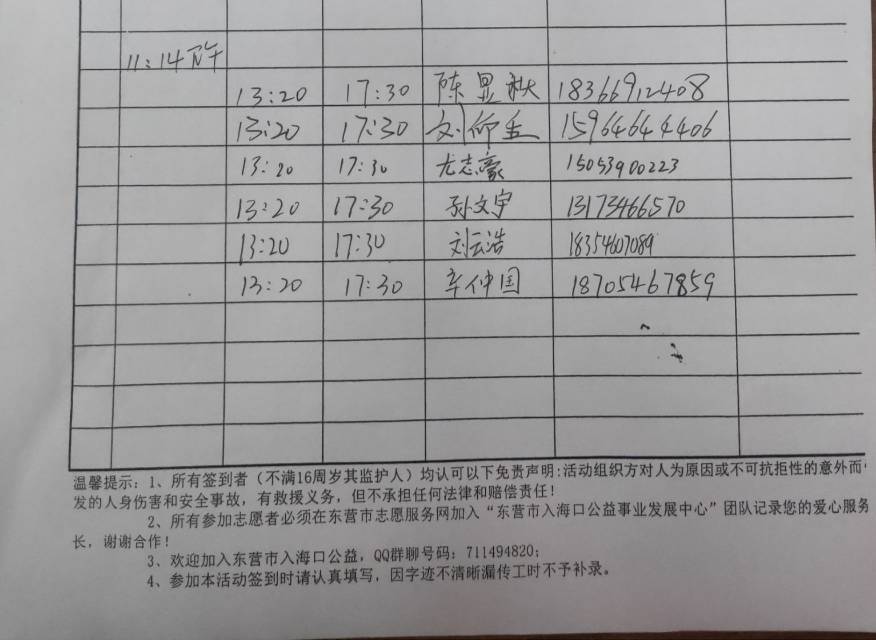 11:14下午
13:20 17:30 陈显秋 18366912408
13:20 17:30 刘仰 15964644406
13:20 17:30 尤志豪 15053900223
13:20 17:30 孙文宇 13173466570
13:20 17:30 刘云浩 18354607089
13:20 17:30 辛仲国 18705467859
温馨提示：1、所有签到者（不满16周岁其监护人）均认可以下免责声明:活动组织方对人为原因或不可抗拒性的意外而
发的人身伤害和安全事故，有救援义务，但不承担任何法律和赔偿责任！
2、所有参加志愿者必须在东营市志愿服务网加入“东营市入海口公益事业发展中心”团队记录您的爱心服务
长，谢谢合作！
3、欢迎加入东营市入海口公益，QQ群聊号码：711494820；
4、参加本活动签到时请认真填写，因字迹不清晰漏传工时不予补录。